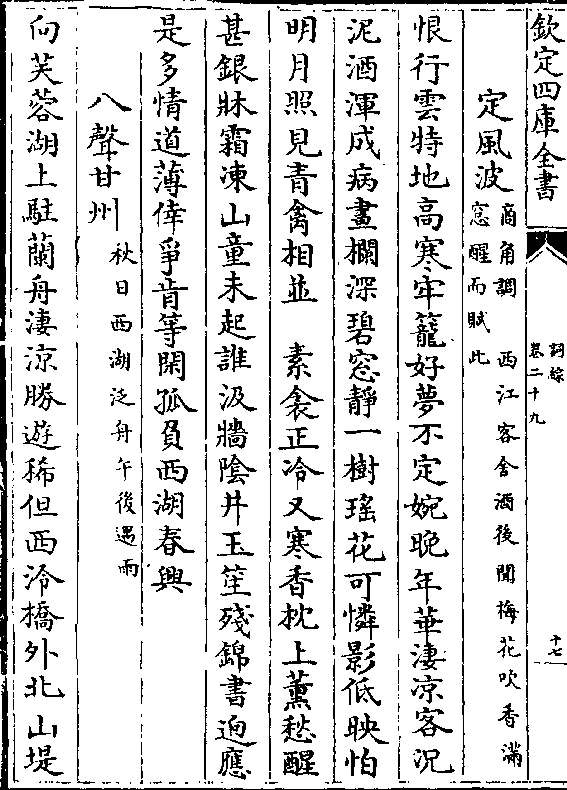 欽定四庫全書
詞綜
卷二十九
十七
定風波 商角調 西江客舍酒後聞梅花吹香滿
窓醒而賦此
恨行雲特地高寒牢籠好夢不定婉晚年華淒凉客況
泥酒渾成病畫欄深碧窓靜一樹瑤花可憐影低映怕
明月照見青禽相並 素衾正冷又寒香枕上薫愁醒
甚銀牀霜凍山童未起誰汲牆陰井玉笙殘錦書逈應
是多情道薄倖爭肯等閑孤負西湖春興
八聲甘州 秋日西湖泛舟午後遇雨
向芙蓉湖上駐蘭舟淒凉勝遊稀但西泠橋外北山堤